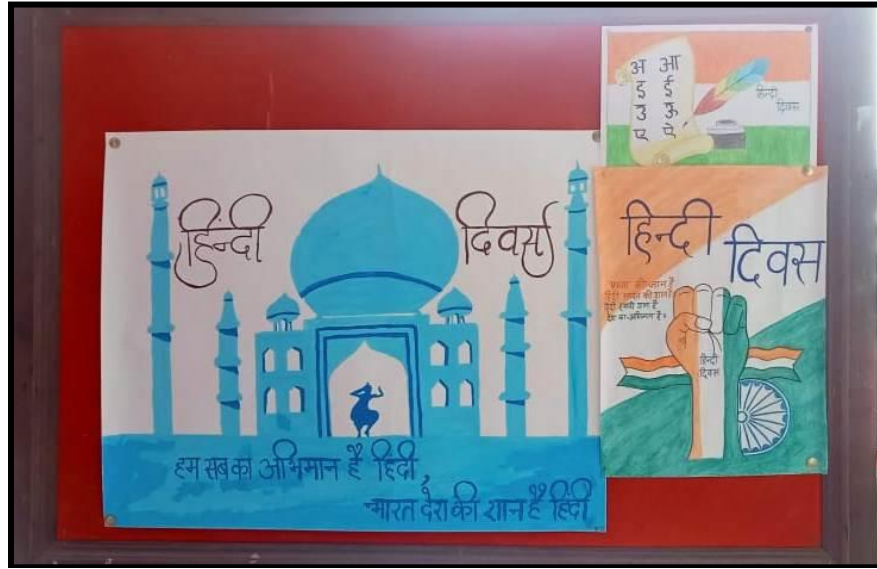 हिंन्दी दिवस
हम सब का अभिमान है हिंदी,
भारत देश की शान है हिंदी
अ आ
इ ई
उ ऊ
ए ऐ
हिन्दी
दिवस
हिन्दी
दिवस
हिन्दी
दिवस